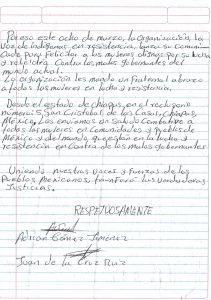 Por eso este ocho de marzo, la organización, la
Voz de indígenas en resistencia, lanza su comuni-
cado para felicitar a las mujeres obreras por su lucha
y rebeldía contra los malos gobernantes del
mundo actual.
La organización les manda un fraternal abrazo
a todas las mujeres en lucha y resistencia.
Desde el estado de chiapas, en el reclusorio
número 5, San Cristobal de las Casas, Chiapas,
México. Les enviamos un saludo combativo a
todas las mujeres en comunidades y pueblos de
México y del mundo, que están en la lucha y
resistencia en contra de los malos gobernantes
Uniendo nuestras voces y fuerzas de los
Pueblos Mexicanos triunfará las verdaderas
Justicias.
RESPETUOSAMENTE
Adrián Gómez Jiménez
Juan de la Cruz Ruiz